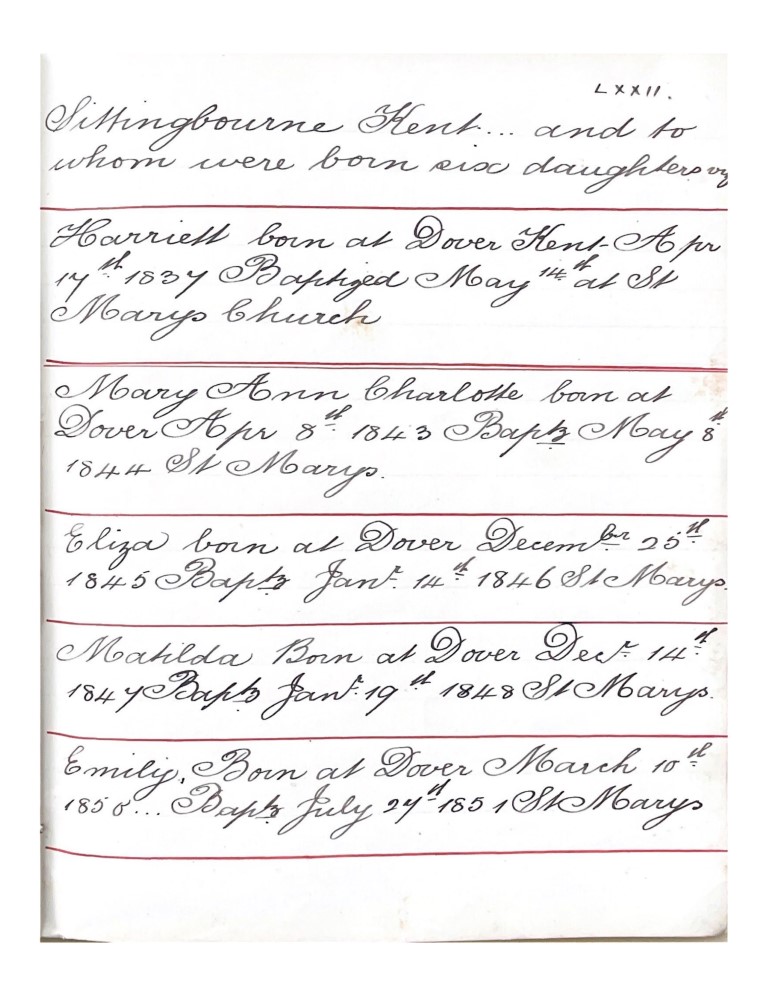 LXXII.
Sittingbourne Kent... and to
whom were born six daughters viz
Harriett born at Dover Kent Apr
17th 1837 Baptized May 14th at St
Marys Church
Mary Ann Charlotte born at
Dover Apr 8th 1843 Baptz May 8th
1844 St Marys.
Eliza born at Dover Decembr 25th
1845 Baptz Jany 14th 1846 St Marys.
Matilda Born at Dover Decr 14th
1847 Baptz Jany 19th 1848 St Marys.
Emily, Born at Dover March 10th
1850... Baptz July 27th 1851 St Marys